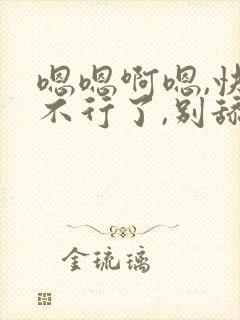 嗯嗯啊嗯,快
不行了,别舔
金琉璃